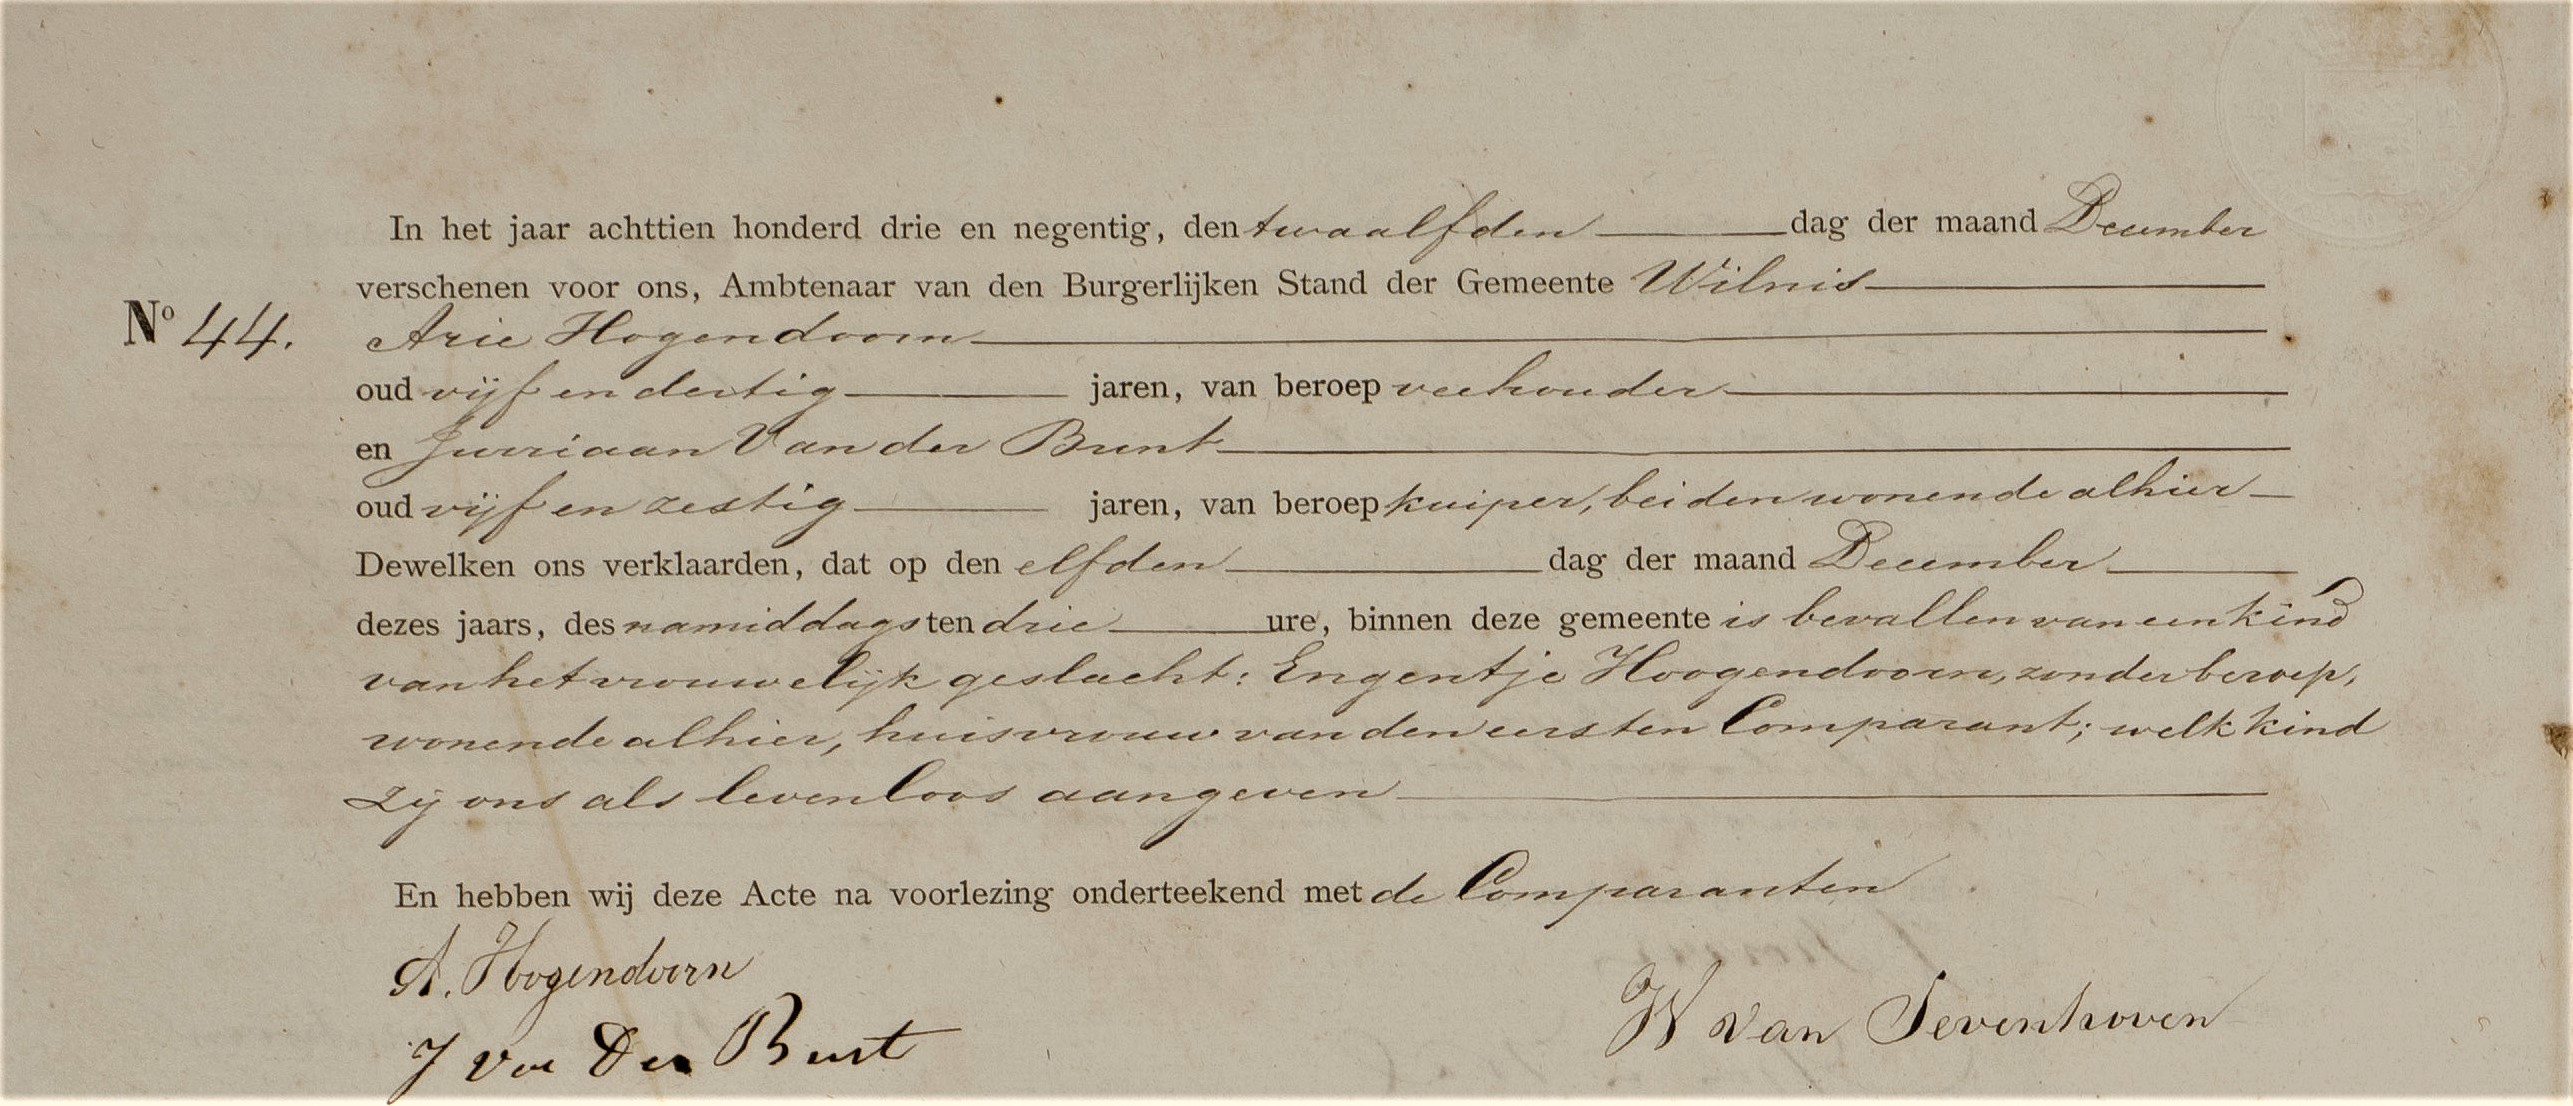 In het jaar achttien honderd drie en negentig, den twaalfden dag der maand December
verschenen voor ons, Ambtenaar van den Burgerlijken Stand der Gemeente Wilnis
No 44. Arie Hogendoorn
oud vijf en dertig jaren, van beroep veehouder
en Jurriaan Van der Bunt
oud vijf en zestig jaren, van beroep kuiper, beiden wonende alhier
Dewelken ons verklaarden, dat op den elfden dag der maand December
dezes jaars, des namiddags ten drie ure, binnen deze gemeente is bevallen van een kind
van het vrouwelijk geslacht: Engentje Hoogendoorn, zonder beroep,
wonende alhier, huisvrouw van den eersten Comparant; welk kind
zij ons als levenloos aangeven
En hebben wij deze Acte na voorlezing onderteekend met de Comparanten
A. Hogendoorn
J Van Der Bunt
W van Sevenhoven